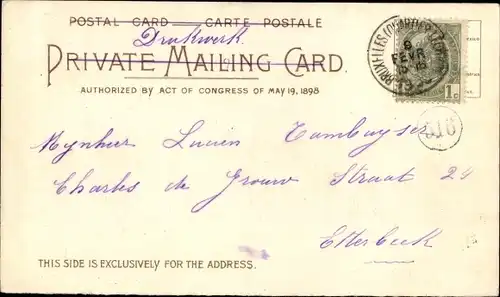 POSTAL CARD — CARTE POSTALE
Drukwerk.
PRIVATE MAILING CARD.
AUTHORIZED BY ACT OF CONGRESS OF MAY 19, 1898
BRUXELLES
6
FEVR
1c
Mynheer Lucien Tambuyser
Charles de Grouw Straat 24
Etterbeek
THIS SIDE IS EXCLUSIVELY FOR THE ADDRESS.